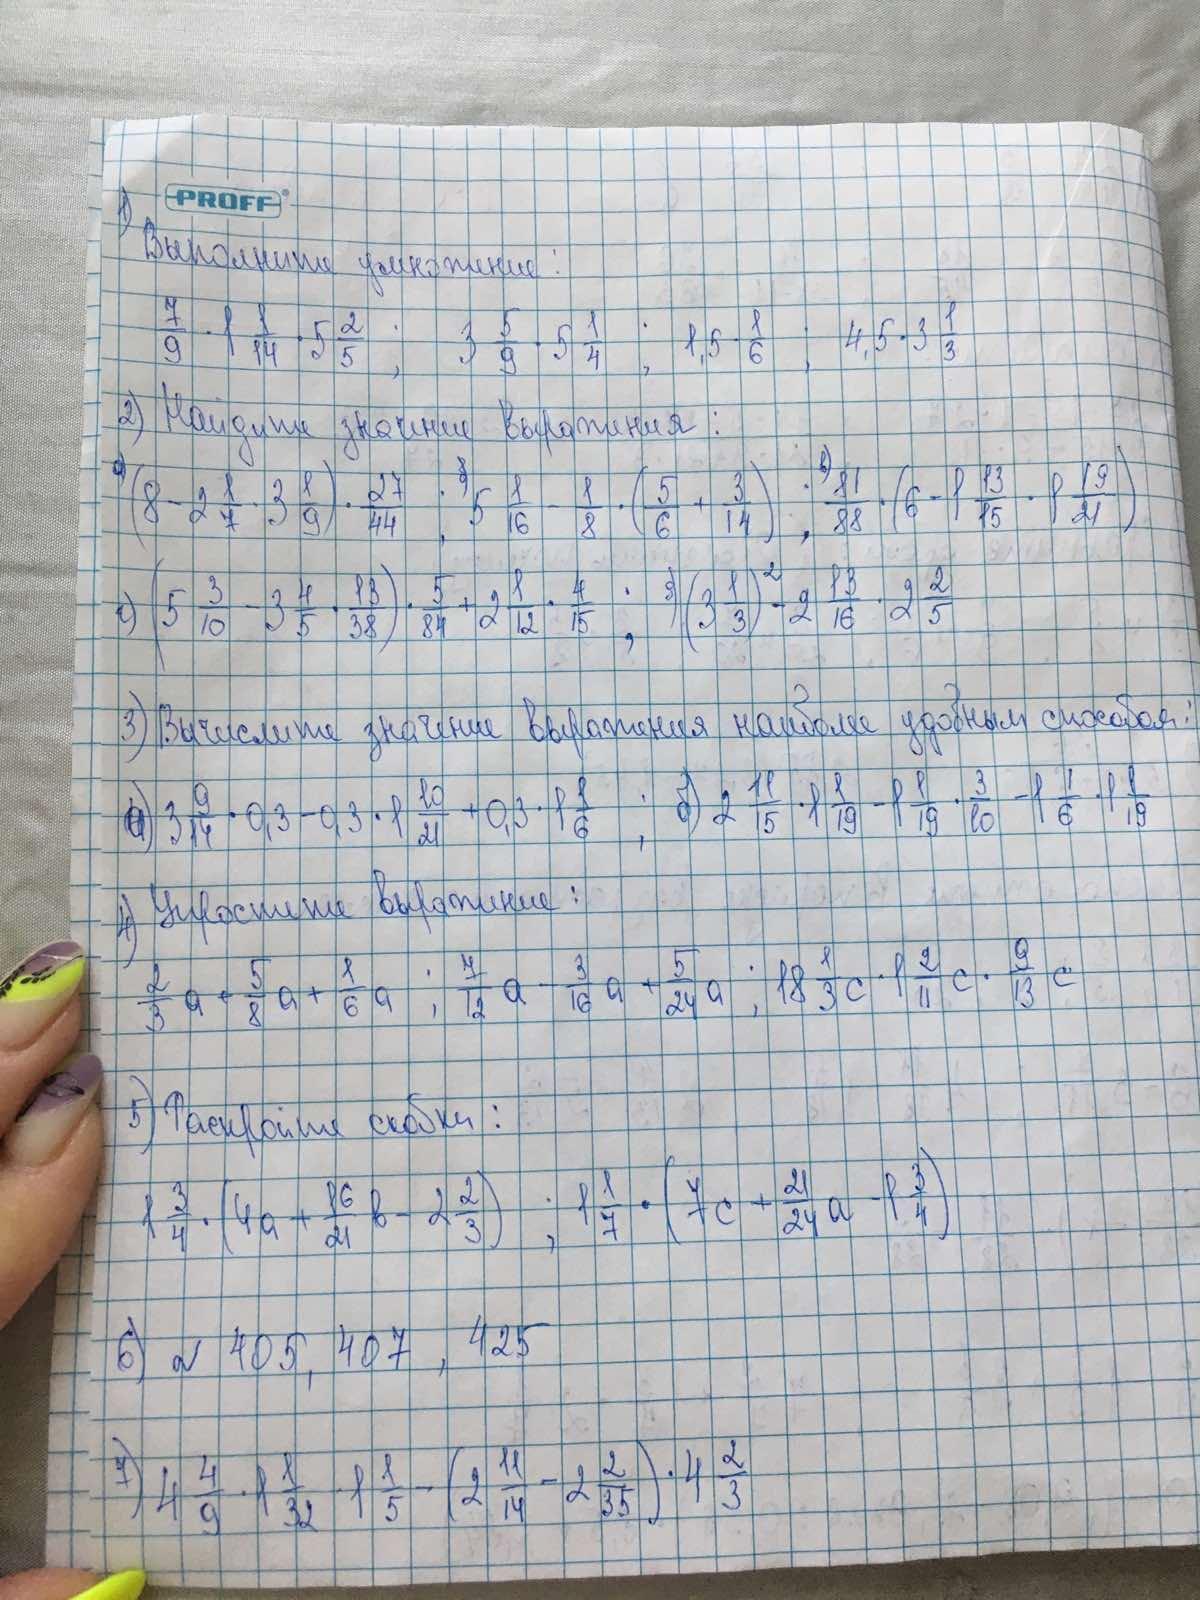 PROFF®
1)
Выполните умножение:
7/9 · 1 1/14 · 5 2/5 ; 3 5/9 · 5 1/4 ; 1,5 · 1/6 ; 4,5 · 3 1/3
2) Найдите значение выражения:
а) (8 - 2 1/7 · 3 1/9) · 27/44 ; б) 5 1/16 - 1/8 · (5/6 + 3/14) ; в) 81/88 · (6 - 1 13/15 · 1 19/21)
г) (5 3/10 - 3 4/5 · 13/38) · 5/84 + 2 1/12 · 4/15 ; д) (3 1/3)² - 2 13/16 · 2 2/5
3) Вычислите значение выражения наиболее удобным способом:
а) 3 9/14 · 0,3 - 0,3 · 1 10/21 + 0,3 · 1 1/6 ; б) 2 11/15 · 1 1/19 - 1 1/19 · 3/10 - 1 1/6 · 1 1/19
4) Упростите выражение:
2/3 а + 5/8 а + 1/6 а ; 7/12 а - 3/16 а + 5/24 а ; 18 1/3 с · 1 2/11 с · 9/13 с
5) Раскройте скобки:
1 3/4 · (4а + 16/21 в - 2 2/3) ; 1 1/7 · (7/7 с + 21/24 а - 1 3/4)
6) № 405, 407, 425
7) 4 4/9 · 1 1/32 · 1 1/5 - (2 11/14 - 2 2/35) · 4 2/3